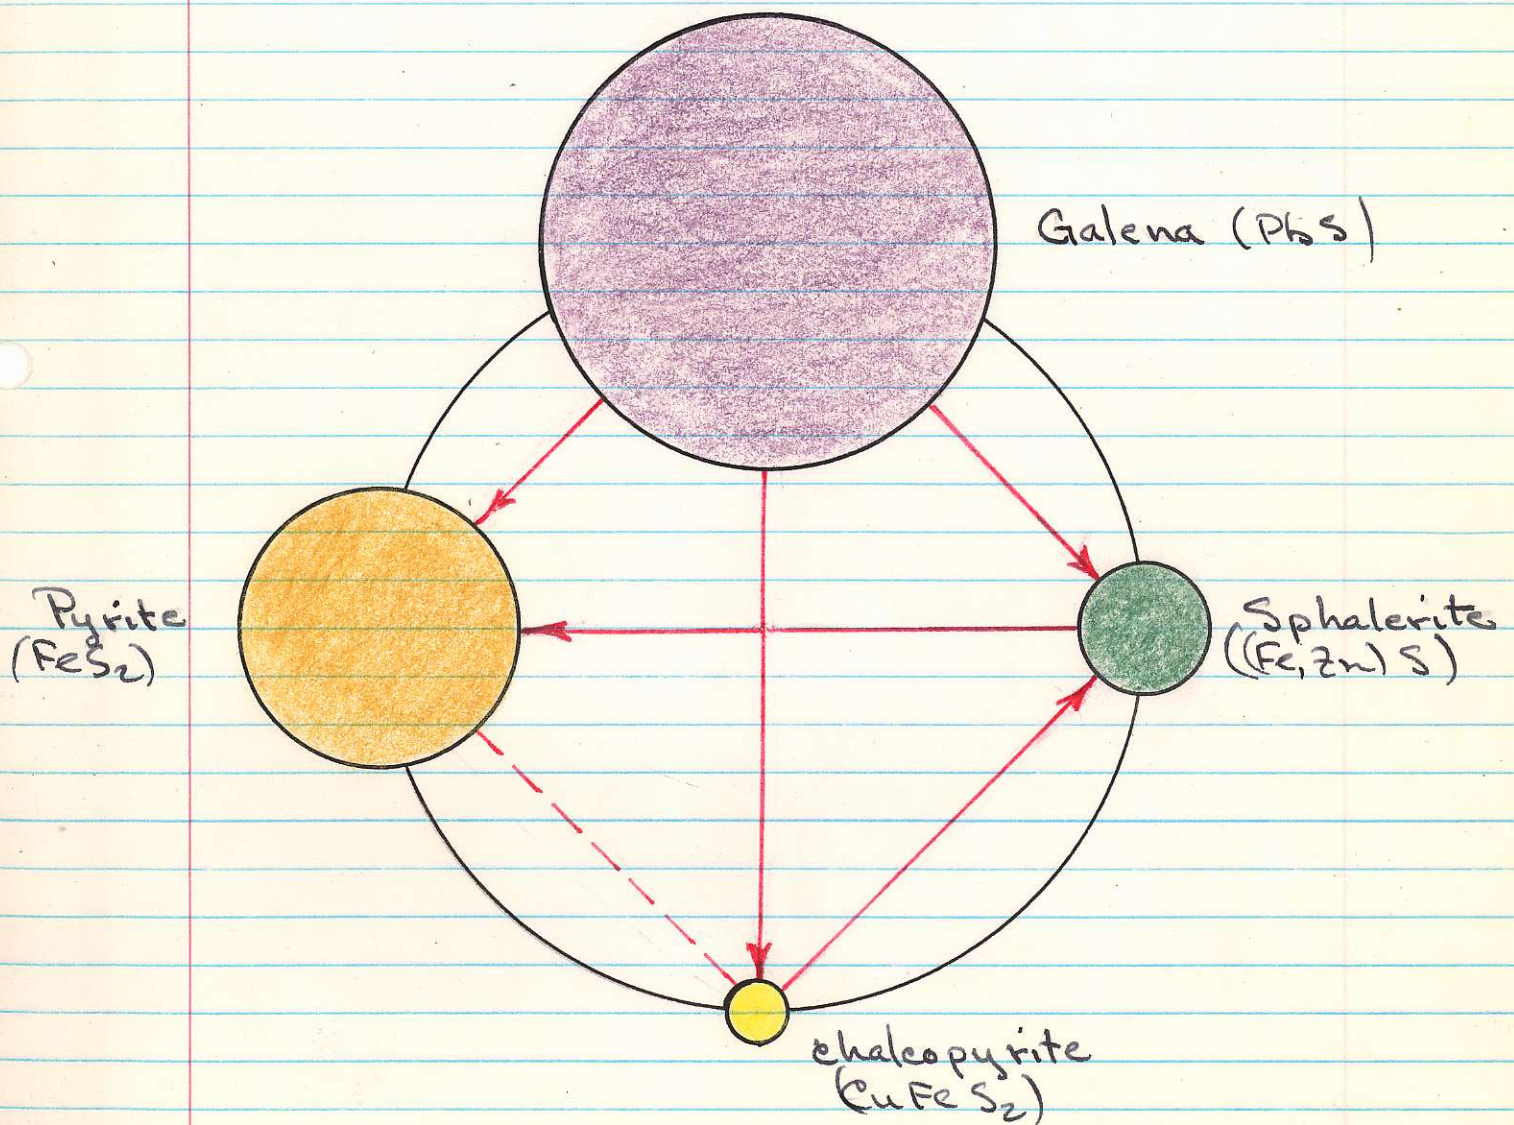 Galena (PbS)
Pyrite
(FeS₂)
Sphalerite
((Fe,Zn)S)
chalcopyrite
(CuFeS₂)